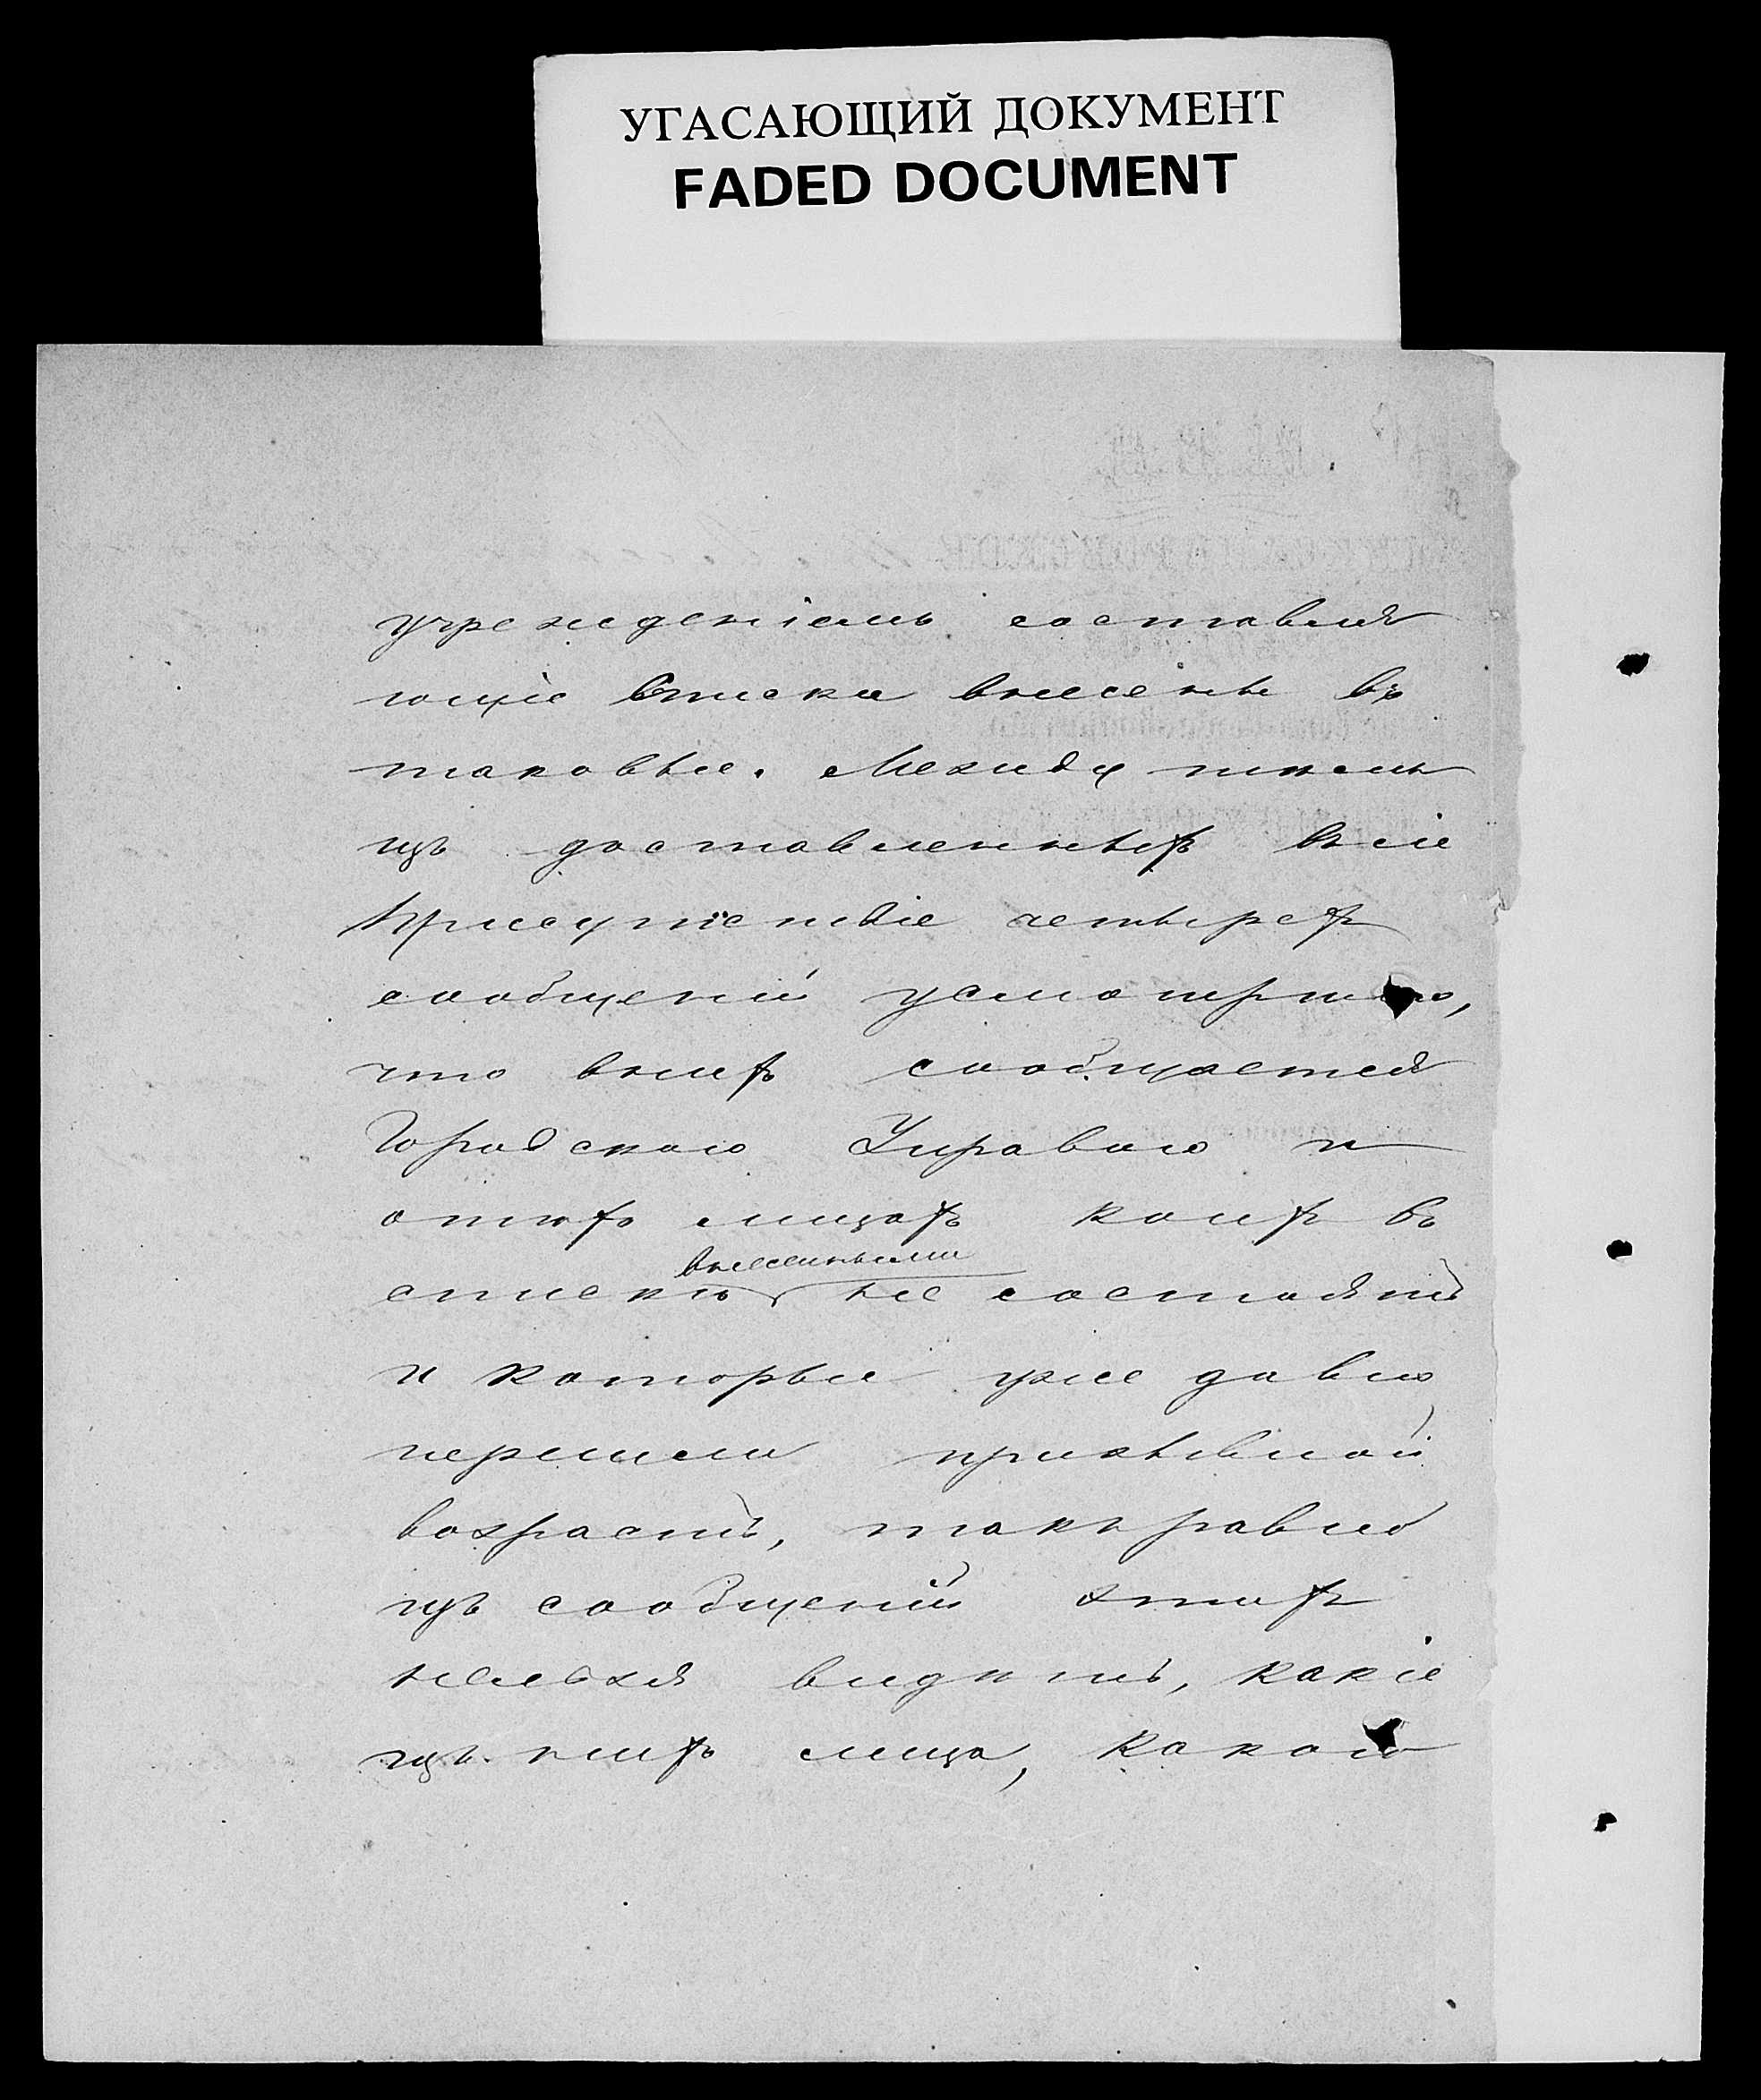 УГАСАЮЩИЙ ДОКУМЕНТ
FADED DOCUMENT
учрежденіемъ составля
ющіе списки внесены въ
таковые. Между тѣмъ
изъ доставленныхъ въ сіе
Присутствіе четырехъ
сообщеній усмотрѣно,
что въ нихъ сообщается
Городскою Управою и
о тѣхъ лицахъ коихъ въ
внесенными
списки не состоятъ
и которые уже давно
перешли призывной
возрастъ, такъ равно
изъ сообщеній этихъ
нельзя видѣть, какіе
изъ нихъ лица, какого